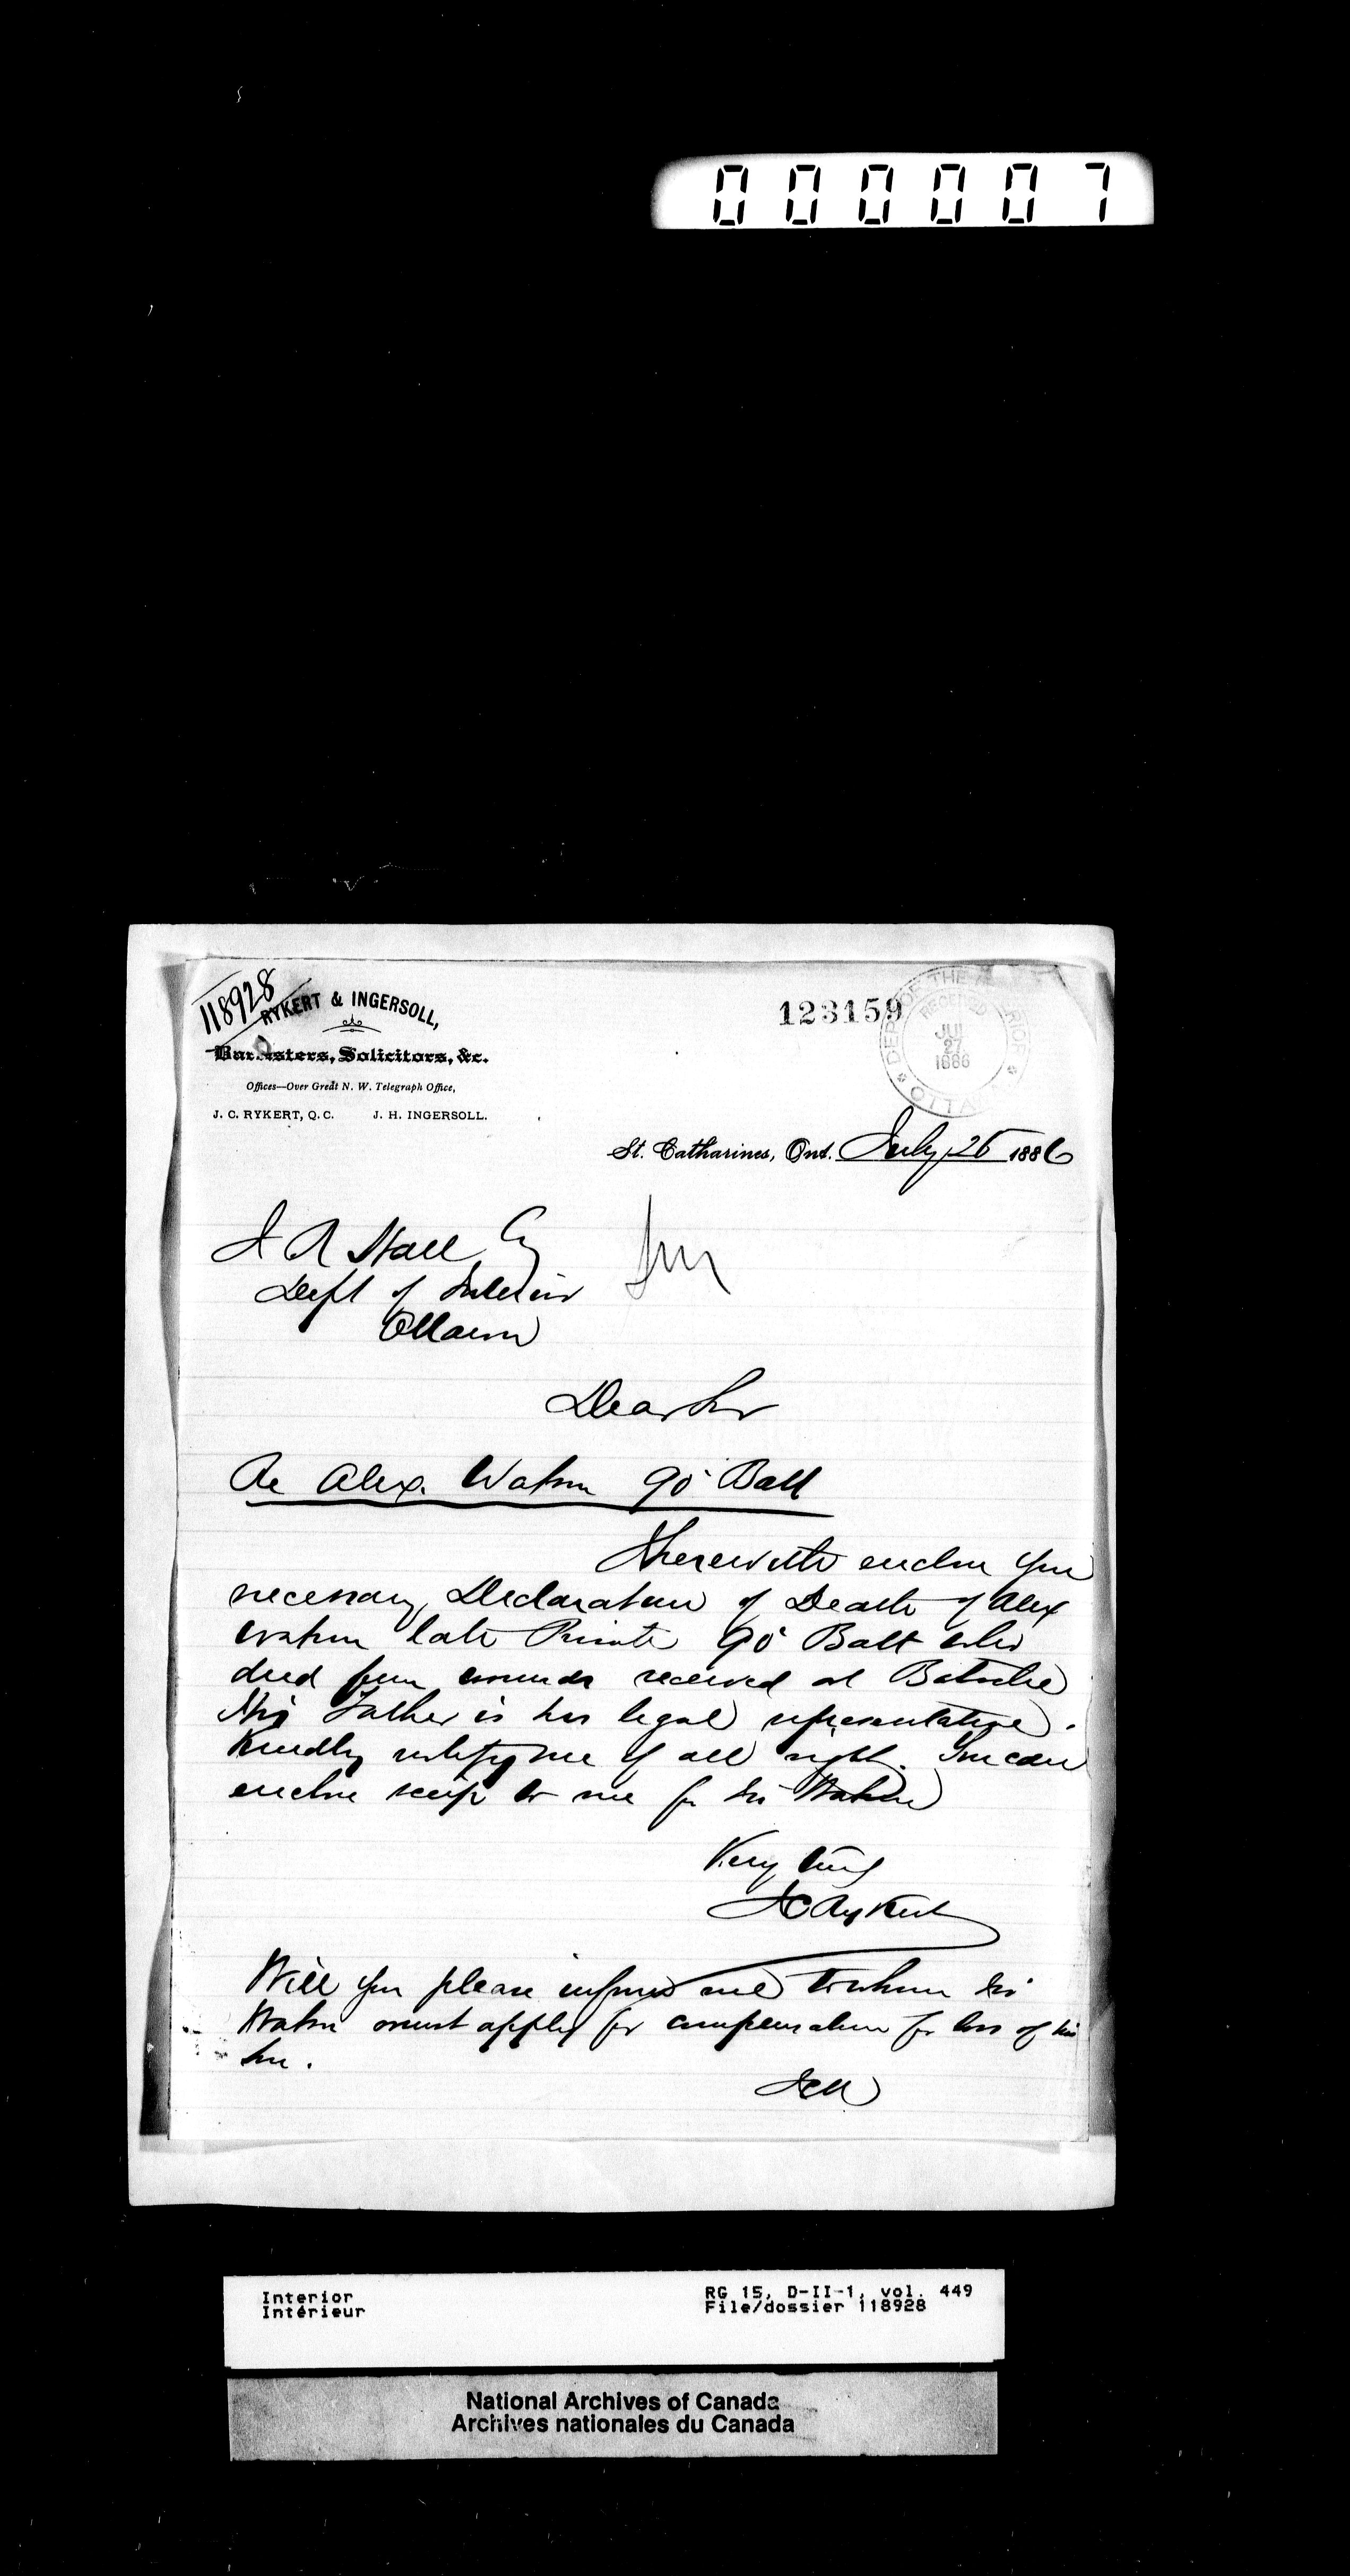 000007
118928
RYKERT & INGERSOLL,
Barristers, Solicitors, &c.
Offices—Over Great N. W. Telegraph Office,
J. C. RYKERT, Q. C. J. H. INGERSOLL.
123159
DEPT OF THE INTERIOR
RECEIVED
JUL
27
1886
OTTAWA
St. Catharines, Ont. July 26 1886
J R Hall Esq
Dept of Interior
Ottawa
Dear Sir
Re Alex. Watson 90 Batt
I herewith enclose you
necessary Declaration of Death of Alex
Watson late Private 90 Batt who
died from wounds received at Batoche
His Father is his legal representative.
Kindly notify me if all right. You can
enclose scrip to me for Mr Watson
Very truly
JC Rykert
Will you please inform me to whom Mr
Watson must apply for compensation for loss of his
son.
JCR
Interior
Intérieur
RG 15, D-II-1, vol. 449
File/dossier 118928
National Archives of Canada
Archives nationales du Canada